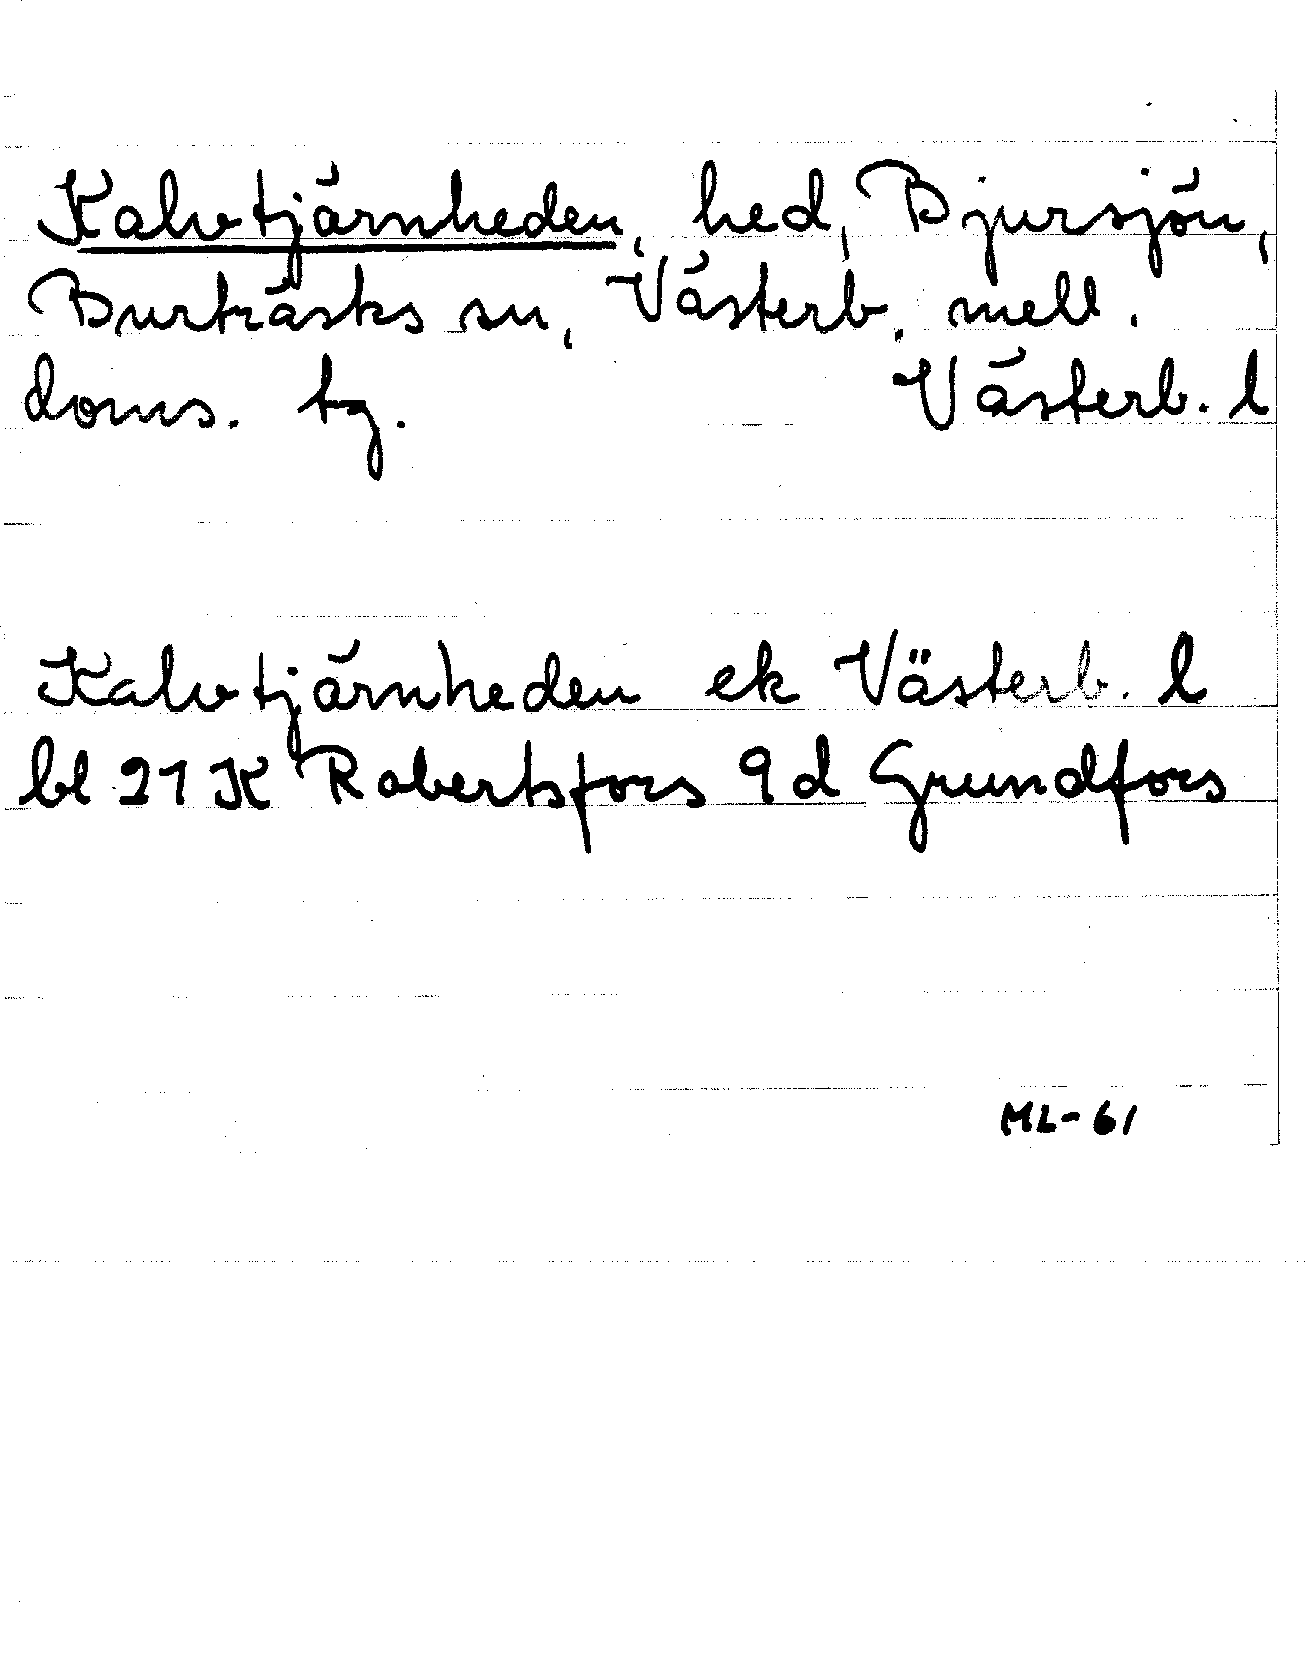 Kalvtjärnheden, hed, Bjursjön,
Burträsks sn, Västerb. mell.
doms. tg. Västerb. l
Kalvtjärnheden ek Västerb. l
bl 21 K Robertsfors 9d Grundfors
ML-61